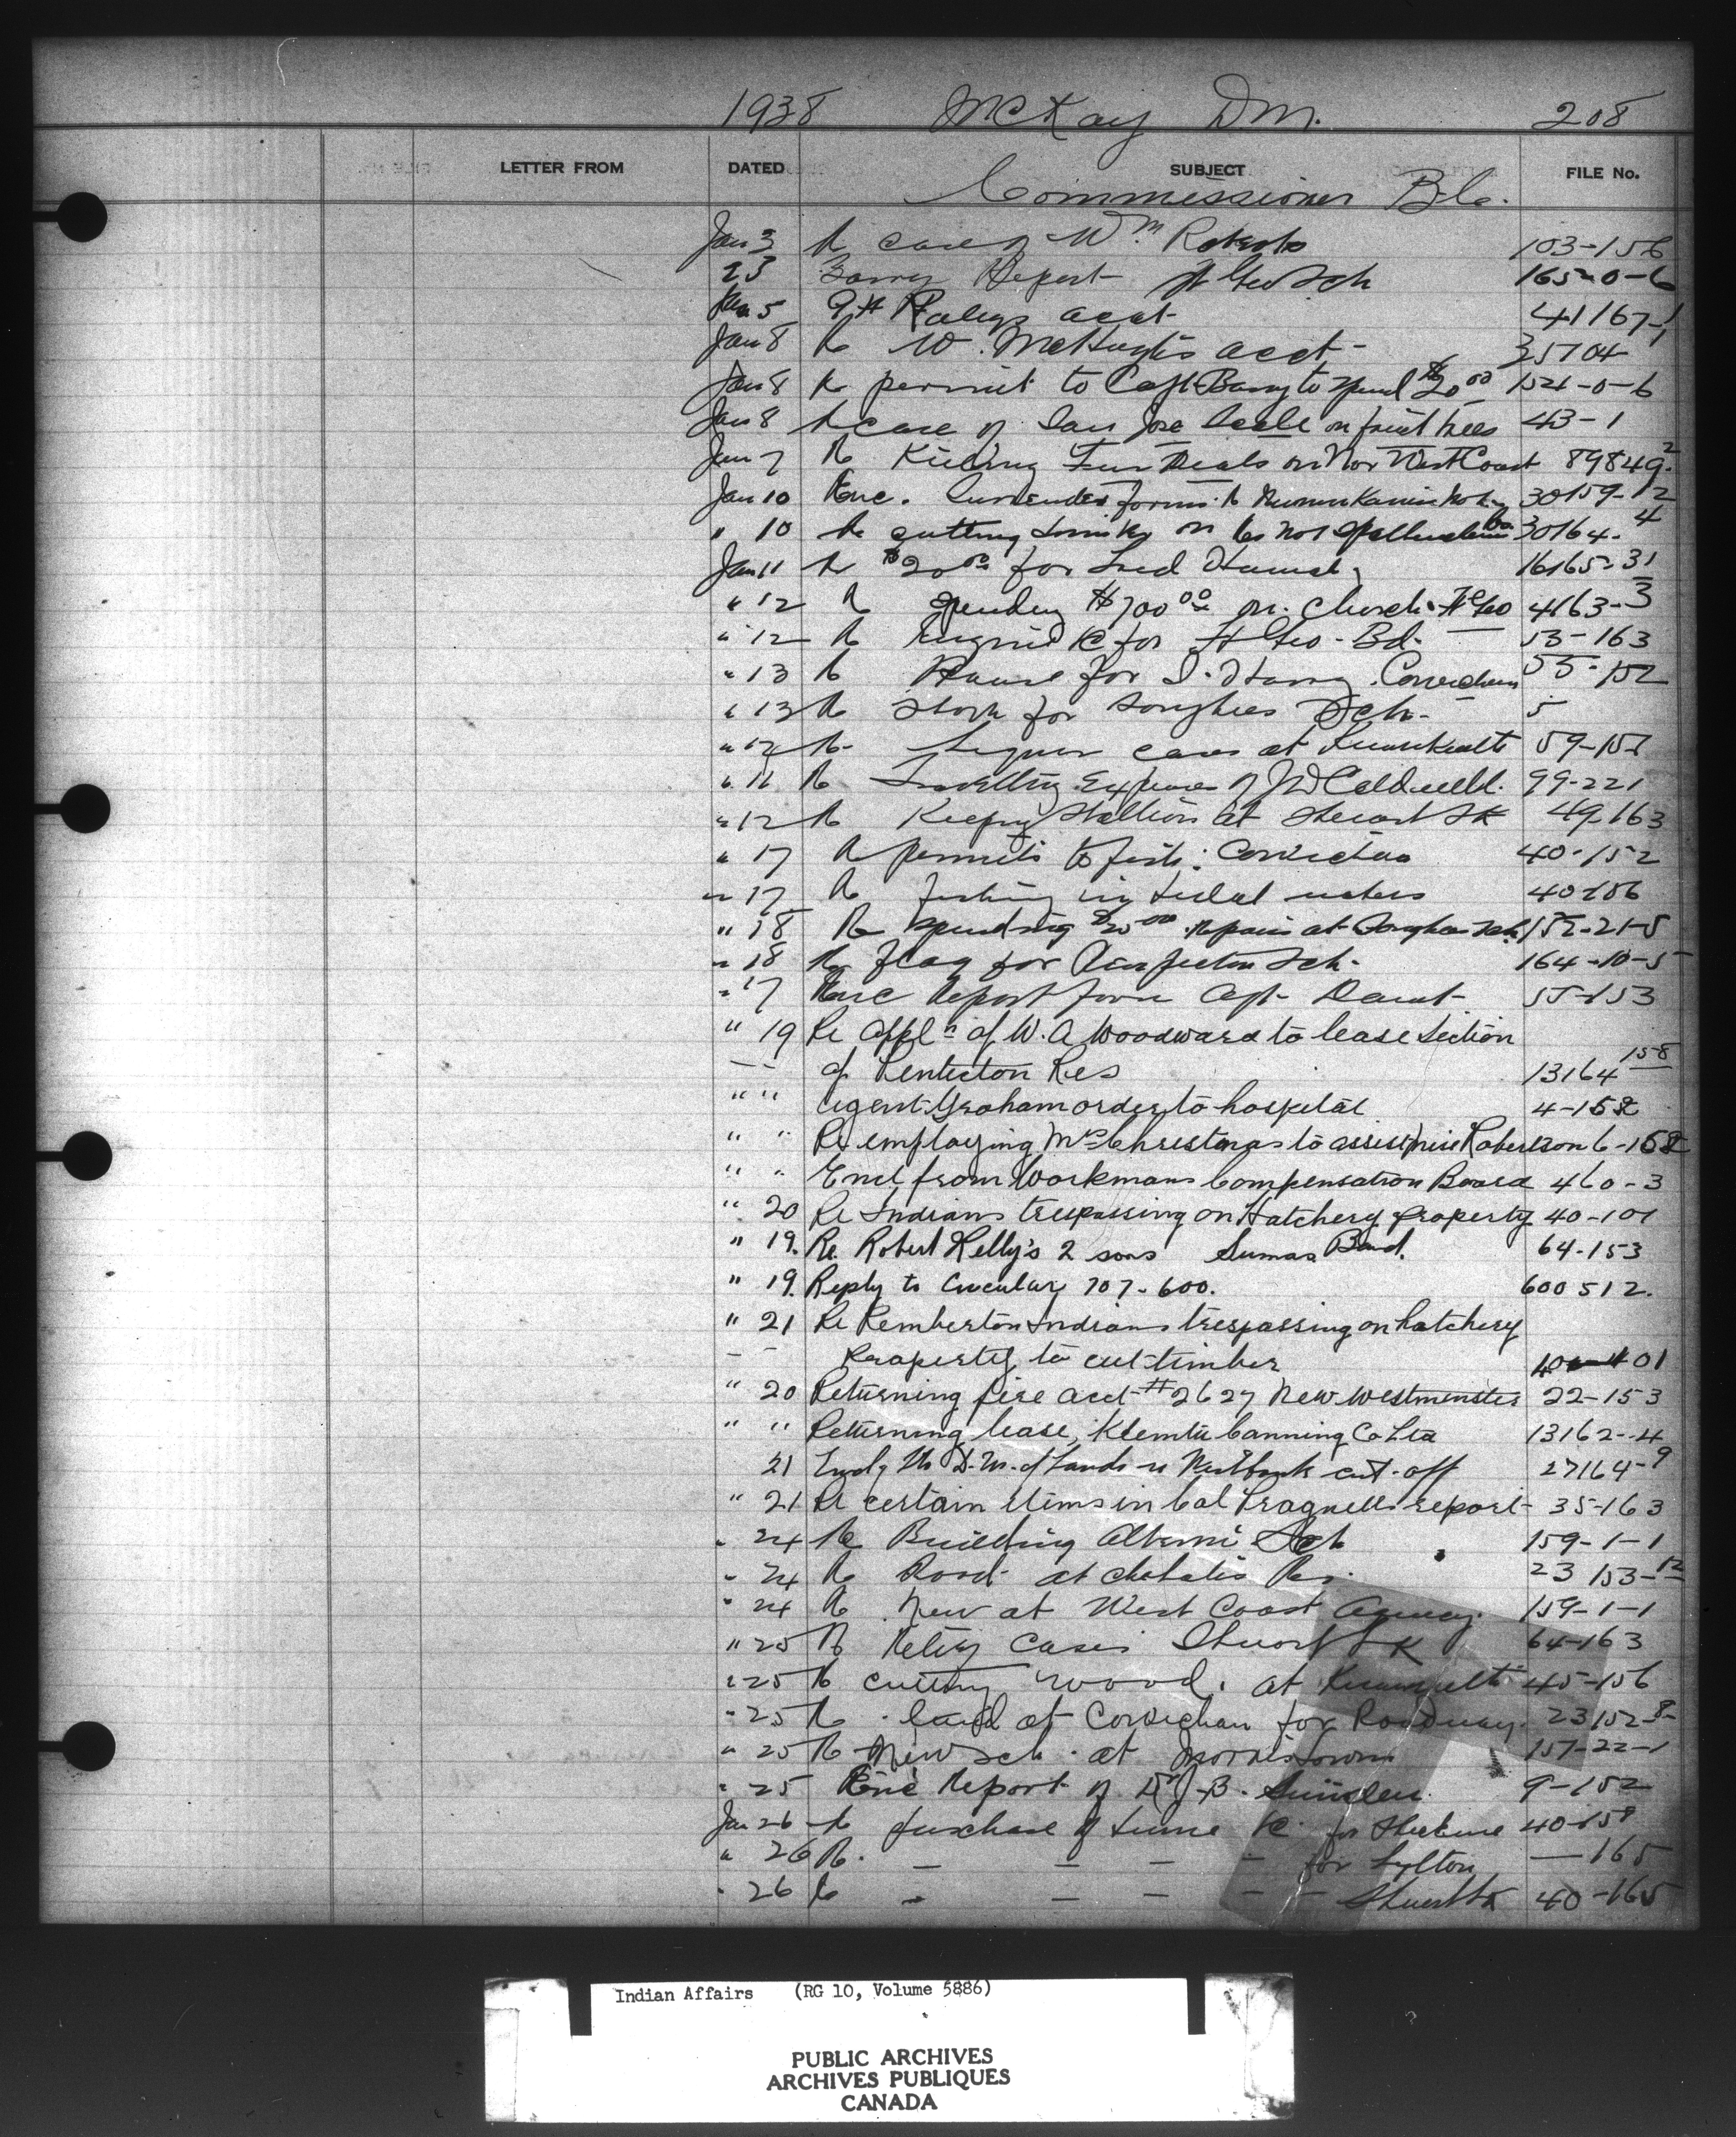 1938 McKay D M. 208
LETTER FROM DATED SUBJECT FILE No.
Commissioner B.C.
Jan 3 Re case of Wm. Roberts 103-156
23 Barry Report Sch 165-0-6
Jan 5 acct 41167-1
Jan 8 Re W. McHugh's acct 35104
Jan 8 Re permit to Capt Barry to spend $20 00 154-0-6
Jan 8 Re case of San Jose Scale on fruit trees 43-1
Jan 7 Re Killing Fur Seals on Nor West Coast 89849-2
Jan 10 Enc. Surrender forms 30159-12
" 10 Re cutting on No 1 30164-4
Jan 11 Re $20 00 for 16165-31
" 12 Re Spending $700 00 on Church Ft Geo 4163-3
" 12 Re Engine &c for Ft Geo - Bd. 53-163
" 13 Re House for Harry Cowichan 55-152
" 13 Re Stove for Songhees Sch. 5
" 12 Re Liquor cases at 59-157
" 11 Re Travelling Expenses of J W Caldwell. 99-221
" 12 Re Keeping Stallion at Stewart Lk 49-163
" 17 Re permits to fish: Cowichan 40-152
" 17 Re fishing in tidal waters 40-106
" 18 Re spending $20 00 repairs at Songhees Sch. 152-21-5
" 18 Re flag for Sch. 164-10-5
" 17 Enc Report from Capt 55-153
" 19 Re Appln of W. A Woodward to lease Section
of Penticton Res 13164 158
" " Agent Graham order to hospital 4-152
" " Re employing Mrs Christmas to assist Miss Robertson 6-152
" " Encl from Workmans Compensation Board 460-3
" 20 Re Indians trespassing on Hatchery property 40-101
" 19. Re. Robert Kelly's 2 sons Sumas Band. 64-153
" 19. Reply to Circular 107-600. 600 512.
" 21 Re Pemberton Indians trespassing on hatchery
Property to cut timber 401
" 20 Returning fire acct #2627 New Westminster 22-153
" " Returning lease, Klemtu Canning Co Ltd 13162-4
21 D.M. of Lands re Westbank cut-off 27164-9
" 21 Re certain items in Col Pragnells report 35-163
" 24 Re Building Alberni Sch 159-1-1
" 24 Re Road at Chehalis Res. 23 153-12
" 24 Re New at West Coast Agency. 159-1-1
" 25 Re Cases Stuart Lk 64-163
" 25 Re cutting wood. at 45-156
" 25 Re land at Cowichan for Roadway. 23152-8
" 25 Re New Sch. at Morristown 157-22-1
" 25 Enc Report of Dr J.B. 9-152
Jan 26 Re purchase of twine &c for Stickine 40-158
" 26 Re. — — — — for Lytton — 165
" 26 Re — — — — Stuart Lk 40-165
Indian Affairs (RG 10, Volume 5886)
PUBLIC ARCHIVES
ARCHIVES PUBLIQUES
CANADA